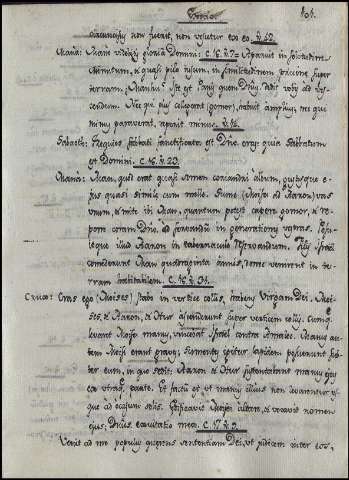 Exodus. 101.
circumcisus non fuerit, non vescetur ex eo. V. 48.
Manà: Mane videbitis gloria Domini. C. 16. V. 7. Apparuit in solitudine
minutum, et quasi pilo tusum, in similitudinem pruinae super
terram, Manhu? Iste est panis quem Dnus dedit vobis ad ves-
cendum. Nec qui plus collegerat gomor, habuit amplius; nec qui
minus paraverat, reperit minus.
Sabath: Requies Sabbati sanctificata est Dno cras; quia Sabbatum
est Domini. C. 16. V. 23.
Manà: Man, quod erat quasi semen coriandri album, gustusque e-
jus quasi similae cum melle. Sume (Moises ad Aaron) vas
unum, et mitte ibi Man, quantum potest capere gomor, et re-
pone coram Dno, ad servandum in generationes vestras. Posu-
itque illud Aaron in tabernaculo reservandum. Filii Israel
comederunt Man quadraginta annis, donec venirent in ter-
ram habitabilem. C. 16. V. 31.
Crux: Cras ego (Moises) stabo in vertice collis, habens Virgam Dei. Moi-
ses, et Aaron, et Hur ascenderunt super verticem collis. Cumque
levaret Moises manus, vincebat Israel contra Amalec. Manus au-
tem Moisi erant graves; sumentes igitur lapidem posuerunt sub-
ter eum, in quo sedit: Aaron et Hur sustentabant manus ejus
ex utraque parte. Et factum est ut manus illius non lassarentur us-
que ad occasum solis. Aedificavit Moises altare, et vocavit nomen
ejus; Dnus exaltatio mea. C. 17. V. 9.
Venit ad me populus quaerens sententiam Dei, ut judicem inter eos,